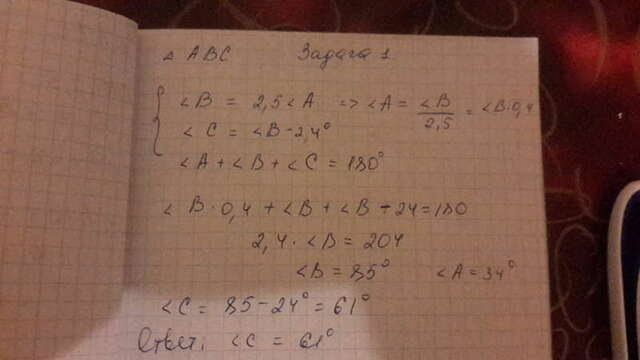 △ ABC Задача 1
∠B = 2,5∠A => ∠A = ∠B/2,5 = ∠B·0,4
∠C = ∠B-2,4°
∠A + ∠B + ∠C = 180°
∠B·0,4 + ∠B + ∠B - 24 = 180
2,4·∠B = 204
∠B = 85° ∠A = 34°
∠C = 85-24° = 61°
Ответ: ∠C = 61°